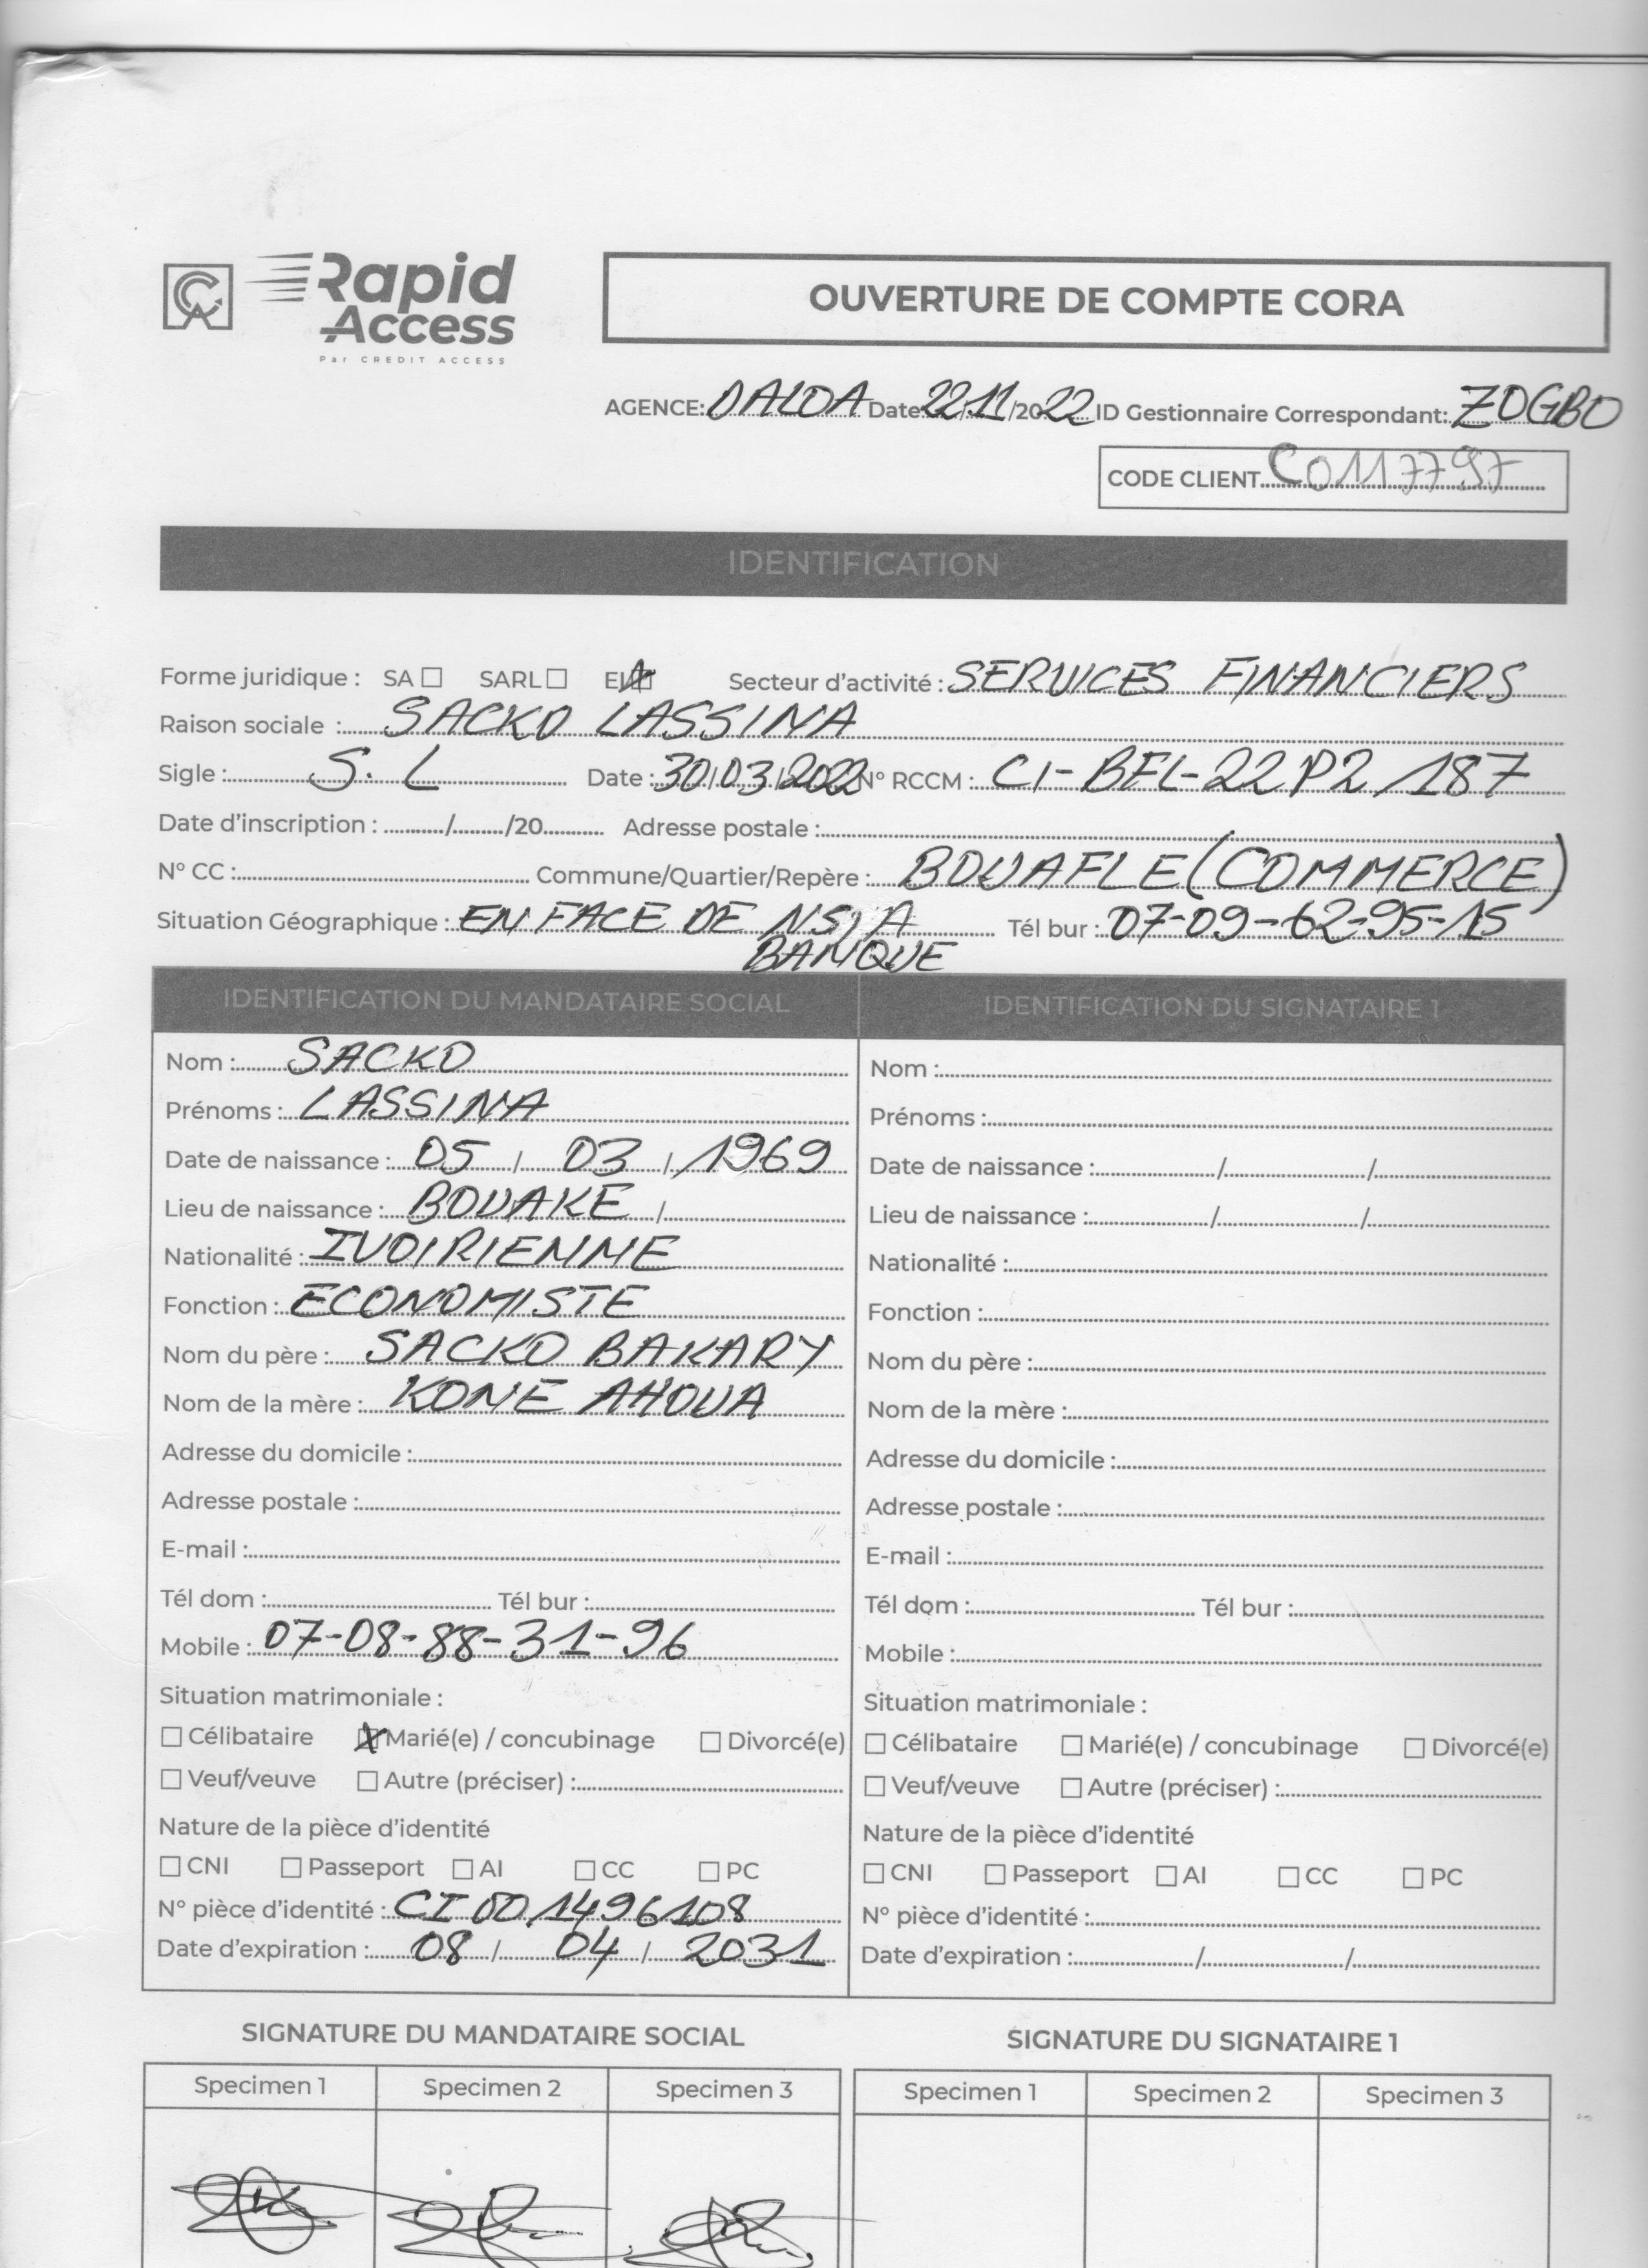 CA Rapid Access
Par CREDIT ACCESS
OUVERTURE DE COMPTE CORA
AGENCE: DALOA Date: 22/11/2022 ID Gestionnaire Correspondant: ZOGBO
CODE CLIENT C0117797
IDENTIFICATION
Forme juridique : SA ☐ SARL ☐ EI ☒ Secteur d'activité : SERVICES FINANCIERS
Raison sociale : SACKO LASSINA
Sigle : S. L Date : 30/03/2022 N° RCCM : CI-BFL-22 P2/187
Date d'inscription : ........../........./20........... Adresse postale :
N° CC : Commune/Quartier/Repère : BOUAFLE (COMMERCE)
Situation Géographique : EN FACE DE NSIA Tél bur : 07-09-62-95-15
BANQUE
IDENTIFICATION DU MANDATAIRE SOCIAL
Nom : SACKO
Prénoms : LASSINA
Date de naissance : 05 / 03 / 1969
Lieu de naissance : BOUAKE /
Nationalité : IVOIRIENNE
Fonction : ECONOMISTE
Nom du père : SACKO BAKARY
Nom de la mère : KONE AHOUA
Adresse du domicile :
Adresse postale :
E-mail :
Tél dom : Tél bur :
Mobile : 07-08-88-31-96
Situation matrimoniale :
☐ Célibataire ☒ Marié(e) / concubinage ☐ Divorcé(e)
☐ Veuf/veuve ☐ Autre (préciser) :
Nature de la pièce d'identité
☐ CNI ☐ Passeport ☐ AI ☐ CC ☐ PC
N° pièce d'identité : CI 001496108
Date d'expiration : 08 / 04 / 2031
IDENTIFICATION DU SIGNATAIRE 1
Nom :
Prénoms :
Date de naissance : / /
Lieu de naissance : / /
Nationalité :
Fonction :
Nom du père :
Nom de la mère :
Adresse du domicile :
Adresse postale :
E-mail :
Tél dom : Tél bur :
Mobile :
Situation matrimoniale :
☐ Célibataire ☐ Marié(e) / concubinage ☐ Divorcé(e)
☐ Veuf/veuve ☐ Autre (préciser) :
Nature de la pièce d'identité
☐ CNI ☐ Passeport ☐ AI ☐ CC ☐ PC
N° pièce d'identité :
Date d'expiration : / /
SIGNATURE DU MANDATAIRE SOCIAL
Specimen 1 Specimen 2 Specimen 3
SIGNATURE DU SIGNATAIRE 1
Specimen 1 Specimen 2 Specimen 3